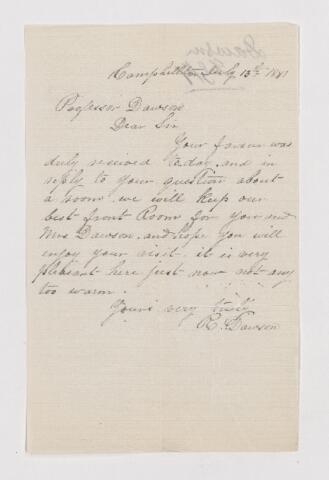 Dawson
Campbellton July 13th 1881
Professor Dawson
Dear Sir
Your favour was
duly received to day, and in
reply to your question about
a room, we will keep our
best front Room for you and
Mrs Dawson, and hope you will
enjoy your visit, it is very
pleasant here just now not any
too warm.
Yours very truly
R. Dawson